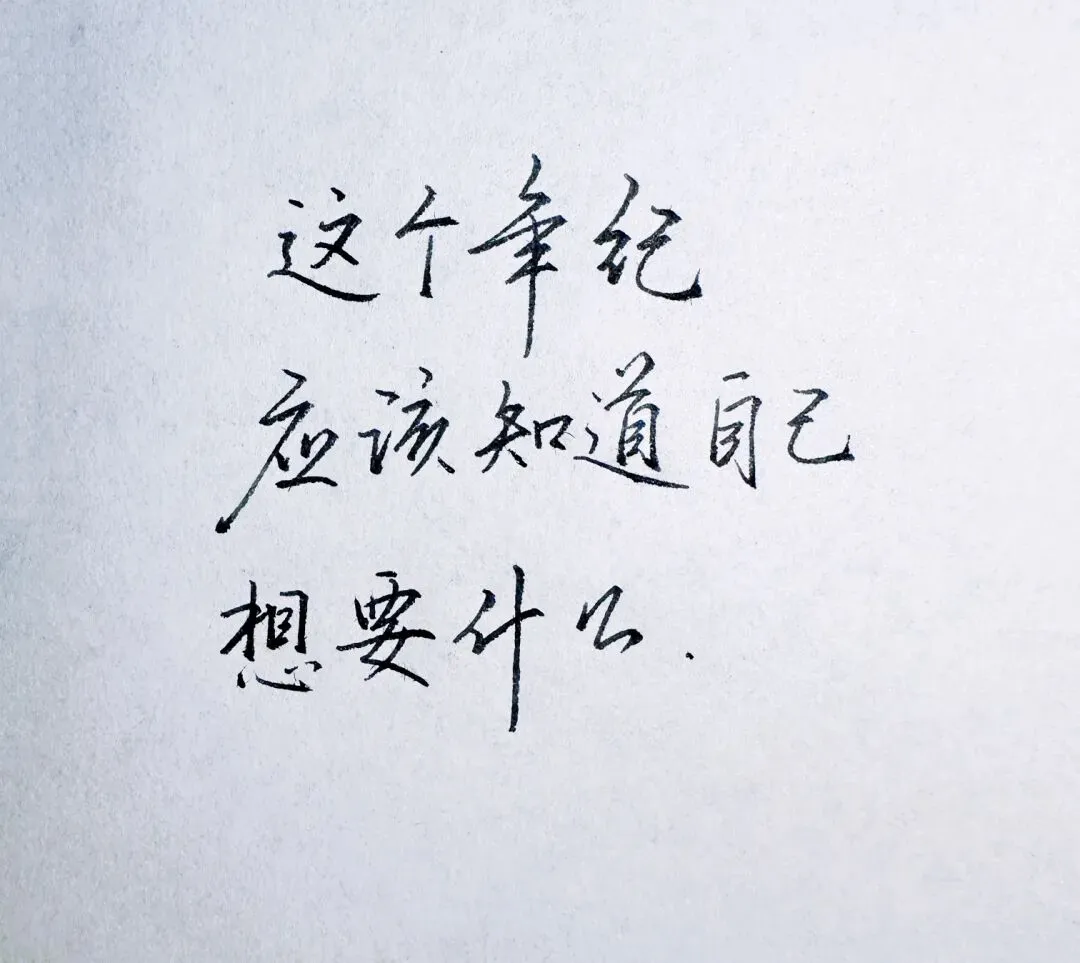 这个年纪
应该知道自己
想要什么.